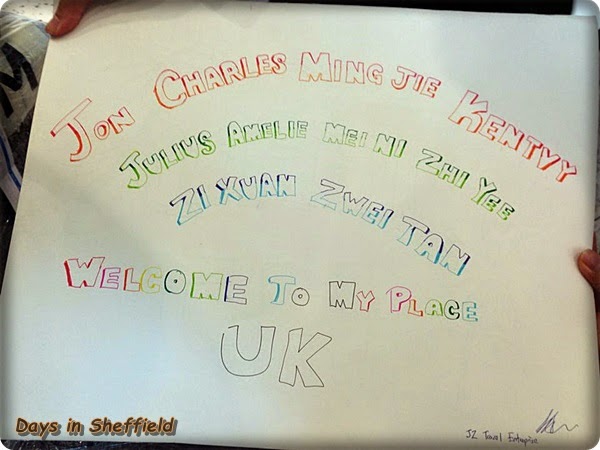 JON CHARLES MING JIE KENTVY
JULIUS AMELIE MEI NI ZHI YEE
ZI XUAN ZWEI TAN
WELCOME TO MY PLACE
UK
JZ Travel Enterprise
Days in Sheffield